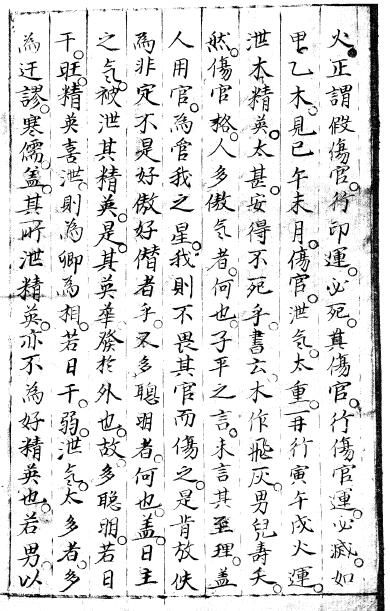 火正謂假傷官行印運必死真傷官行傷官運必滅如
甲乙木見巳午未月傷官泄氣太重再行寅午戌火運
泄木精英太甚安得不死乎書云木作飛灰男兒壽夭
然傷官格人多傲氣者何也子平之言未言其至理蓋
人用官為管我之星我則不畏其官而傷之是肯放佚
為非定不是好傲好僭者乎又多聰明者何也蓋日主
之氣被泄其精英是其英華發於外也故多聪明若日
干旺精英喜泄則為卿為相若日干弱泄氣太多者多
為迂謬寒儒蓋其所泄精英亦不為好精英也若男以